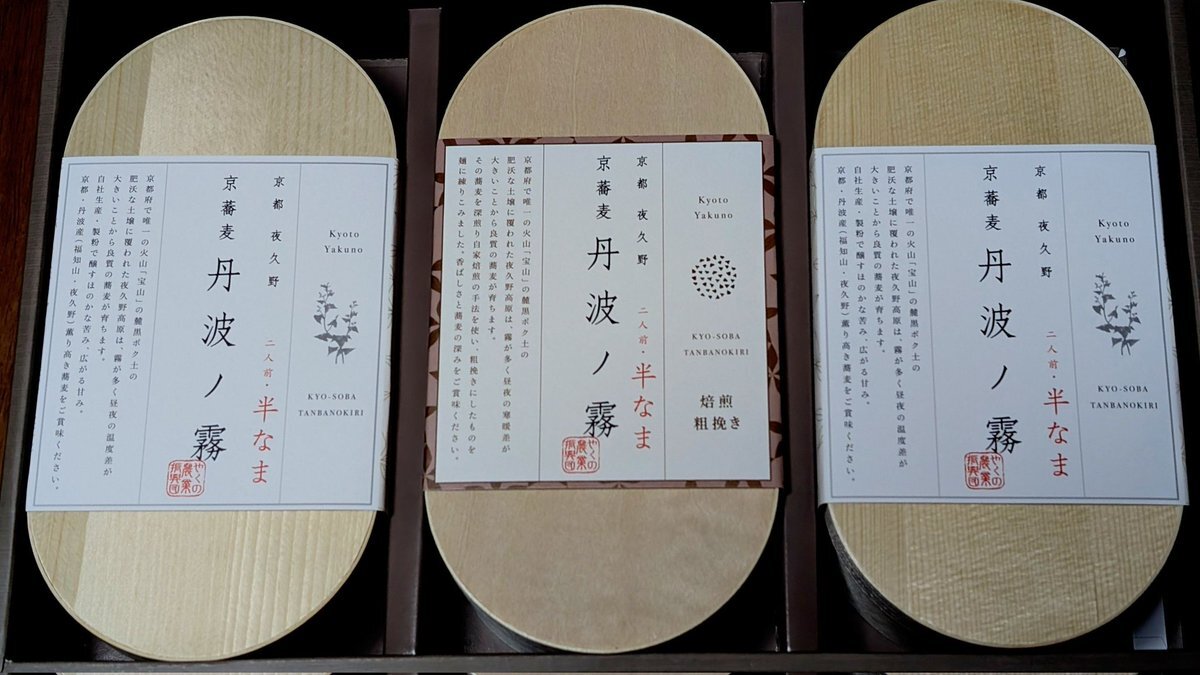 Kyoto
Yakuno
KYO-SOBA
TANBANOKIRI
京都 夜久野
二人前・半なま
京蕎麦 丹波ノ霧
やくの
農業
振興団
京都府で唯一の火山「宝山」の麓黒ボク土の
肥沃な土壌に覆われた夜久野高原は、霧が多く昼夜の温度差が
大きいことから良質の蕎麦が育ちます。
自社生産・製粉で醸すほのかな苦み、広がる甘み。
京都・丹波産(福知山・夜久野)薫り高き蕎麦をご賞味ください。
Kyoto
Yakuno
KYO-SOBA
TANBANOKIRI
焙煎
粗挽き
京都 夜久野
二人前・半なま
京蕎麦 丹波ノ霧
やくの
農業
振興団
京都府で唯一の火山「宝山」の麓黒ボク土の
肥沃な土壌に覆われた夜久野高原は、霧が多く昼夜の寒暖差が
大きいことから良質の蕎麦が育ちます。
その蕎麦を深煎り自家焙煎の手法を使い、粗挽きにしたものを
麺に練りこみました。香ばしさと蕎麦の深みをご賞味ください。
Kyoto
Yakuno
KYO-SOBA
TANBANOKIRI
京都 夜久野
二人前・半なま
京蕎麦 丹波ノ霧
やくの
農業
振興団
京都府で唯一の火山「宝山」の麓黒ボク土の
肥沃な土壌に覆われた夜久野高原は、霧が多く昼夜の温度差が
大きいことから良質の蕎麦が育ちます。
自社生産・製粉で醸すほのかな苦み、広がる甘み。
京都・丹波産(福知山・夜久野)薫り高き蕎麦をご賞味ください。